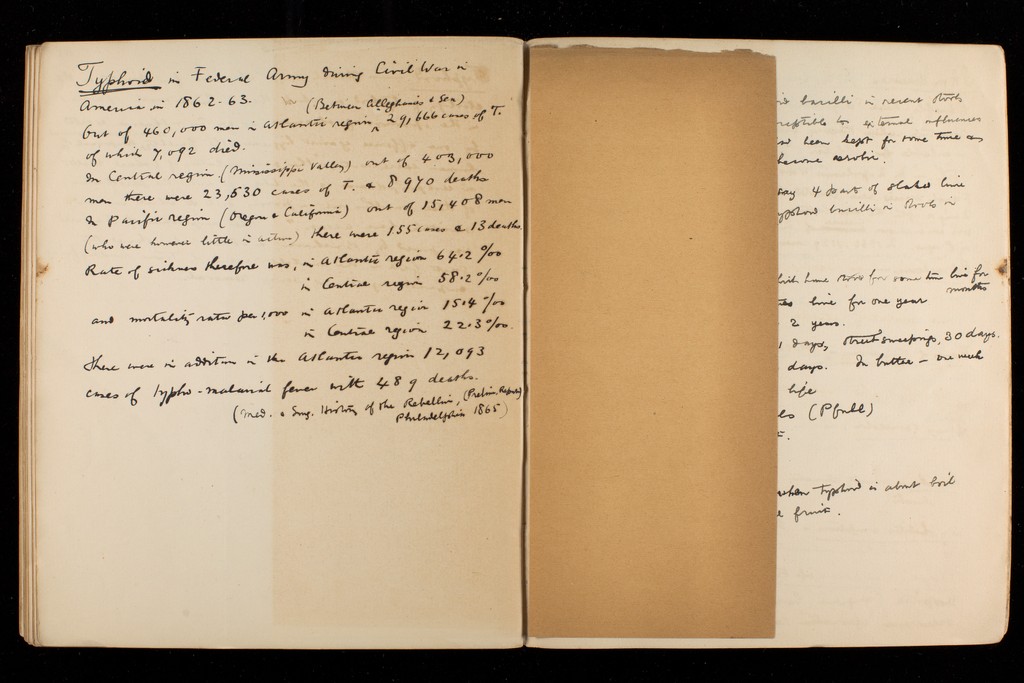 Typhoid in Federal Army during Civil War in
America in 1862-63.
(Between Alleghanies & Sea)
Out of 460,000 men in Atlantic region 29,666 cases of T.
of which 7,092 died.
In Central region (Mississippi Valley) out of 403,000
men there were 23,530 cases of T. & 8970 deaths
In Pacific region (Oregon & California) out of 15,408 men
(who were however little in action) there were 155 cases & 13 deaths.
Rate of sickness therefore was, in Atlantic region 64.2 ‰
in Central region 58.2 ‰
and mortality rates per 1,000 in Atlantic region 15.4 ‰
in Central region 22.3 ‰.
There were in addition in the Atlantic region 12,093
cases of typho-malarial fever with 489 deaths.
(Med. & Surg. History of the Rebellion, (Prelim. Report)
Philadelphia 1865)
bacilli in recent stools
to external influences
been kept for some time as
become aerobic.
say 4 parts of slaked lime
typhoid bacilli in stools in
time stools for some time live for
months
live for one year
2 years.
days, street sweepings, 30 days.
days. In butter – one week
life
(Pfull)
when typhoid is about boil
fruit.